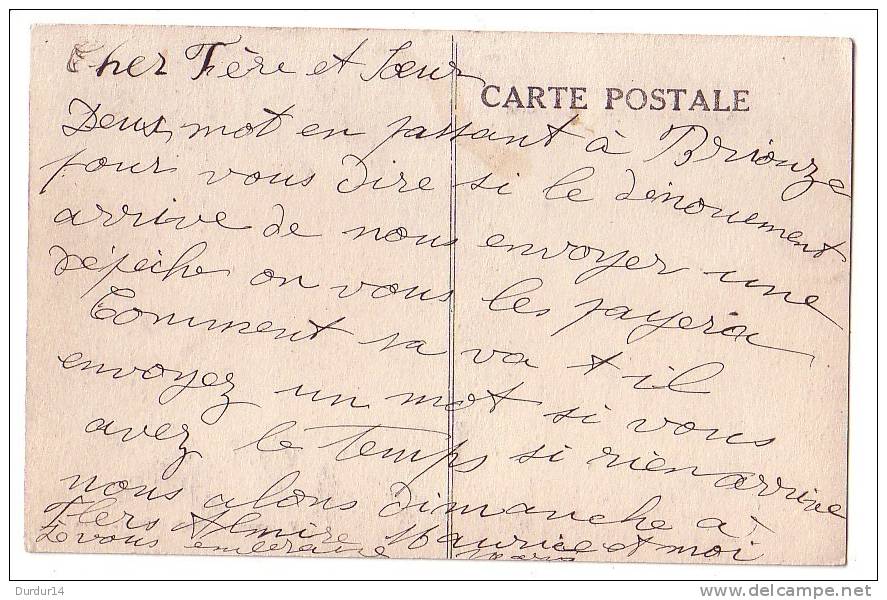 Cher Frère et Sœur
CARTE POSTALE
Deux mot en passant à Briouze
pour vous dire si le dénouement
arrive de nous envoyer une
dépêche on vous les payera
Comment sa va t il
envoyez un mot si vous
avez le temps si rien arrive
nous alons dimanche a
Flers Almire Maurice et moi
vous
Durdur14
www.delcampe.net